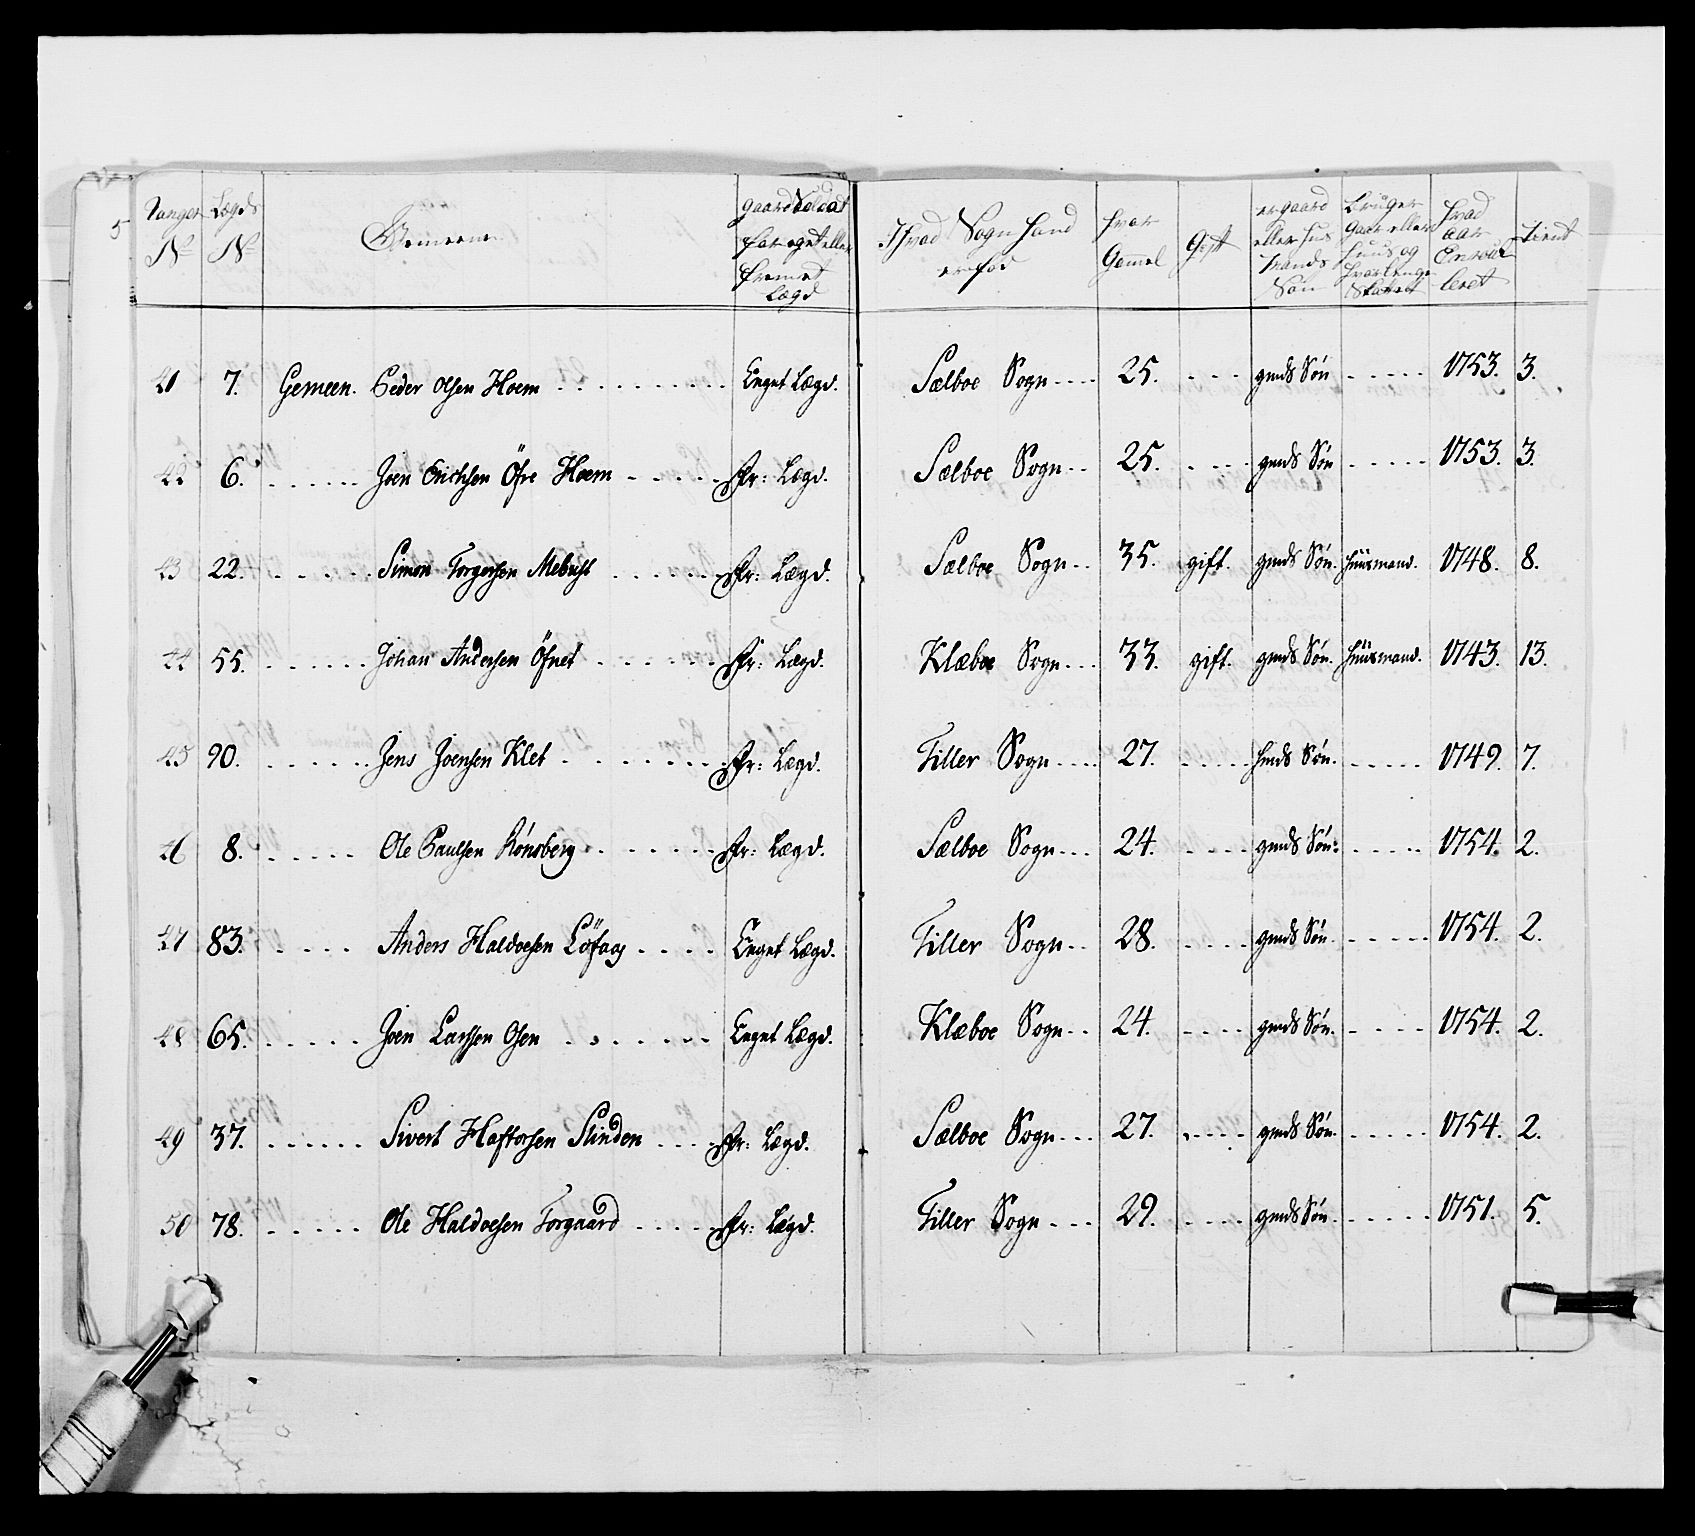 5
Rangen No | Lægds No | Gemeene | gaar Soldat for eget eller fremet Lægd | I hvad Sogn hand er fød | hvor Gamel | Gift | er gaard eller hus mands Søn | bruger gaar eller huus og hvor lenge | hvad aar Enroulleret | tient
41 | 7. | Gemeen. Peder Olsen Hoem | Enget Lægd. | Sælboe Sogn | 25. | | gmds Søn | | 1753. | 3.
42 | 6. | Joen Erichsen Öfre Hoem | fr: Lægd. | Sælboe Sogn | 25. | | gmds Søn | | 1753. | 3.
43 | 22. | Simon Torgersen Mebust | fr: Lægd. | Sælboe Sogn | 35. | gift. | gmds Søn. | huusmand. | 1748. | 8.
44 | 55. | Johan Andersen Öfnet | fr: Lægd. | Klæboe Sogn | 33. | gift. | gmds Søn. | huusmand. | 1743. | 13.
45 | 90. | Jens Joensen Klet | fr: Lægd. | Tiller Sogn | 27. | | hmds Søn. | | 1749. | 7.
46 | 8. | Ole Paulsen Rönsberg | fr: Lægd. | Sælboe Sogn | 24. | | gmds Søn. | | 1754. | 2.
47 | 83. | Anders Haldoesen Löfaas | Enget Lægd. | Tiller Sogn | 28. | | gmds Søn. | | 1754. | 2.
48 | 65. | Joen Larssen Osen | Enget Lægd. | Klæboe Sogn | 24. | | gmds Søn. | | 1754. | 2.
49 | 37. | Sivert Haftorsen Slinden | fr: Lægd. | Sælboe Sogn | 27. | | gmds Søn. | | 1754. | 2.
50 | 78. | Ole Haldoesen Torgaard | fr: Lægd. | Tiller Sogn | 29. | | gmds Søn. | | 1751. | 5.